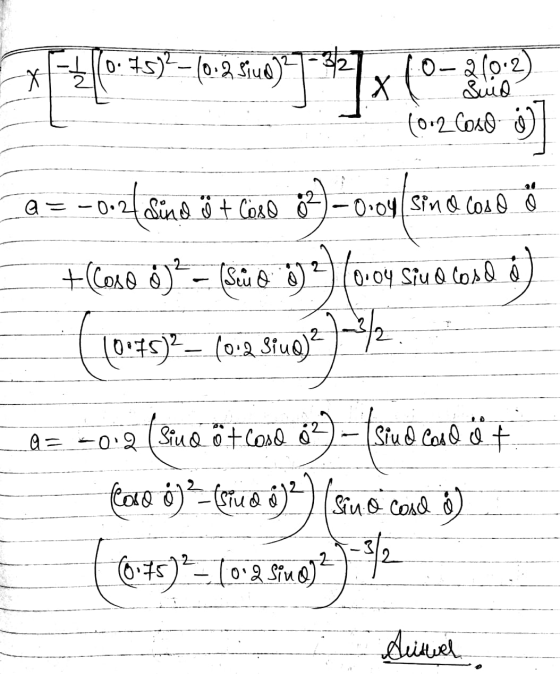 × [-1/2 [(0.75)² - (0.2 Sinθ)²]^-3/2] × (0 - 2(0.2)
Sinθ
(0.2 Cosθ θ̇)]
a = -0.2 (Sinθ θ̈ + Cosθ θ̇²) - 0.04 (Sinθ Cosθ θ̈
+ (Cosθ θ̇)² - (Sinθ θ̇)²) (0.04 Sinθ Cosθ θ̇)
((0.75)² - (0.2 Sinθ)²)^-3/2.
a = -0.2 (Sinθ θ̈ + Cosθ θ̇²) - (Sinθ Cosθ θ̈ +
(Cosθ θ̇)² - (Sinθ θ̇)²) (Sinθ Cosθ θ̇)
((0.75)² - (0.2 Sinθ)²)^-3/2
Answer.